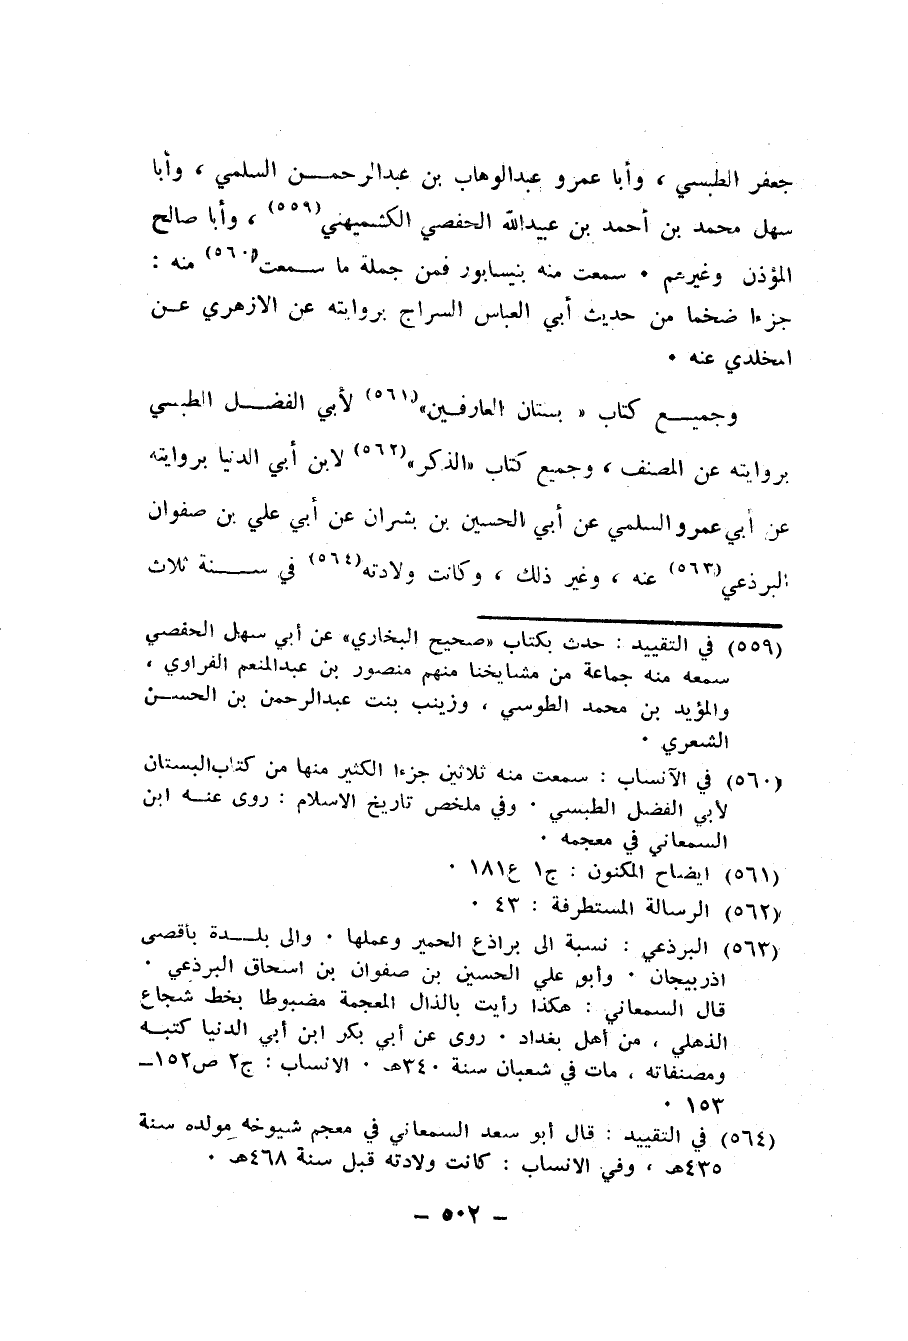 جعفر الطبسي ، وأبا عمرو عبدالوهاب بن عبدالرحمن السلمي ، وأبا
سهل محمد بن أحمد بن عبيدالله الحفصي الكشميهني(٥٥٩) ، وأبا صالح
المؤذن وغيرهم ٠ سمعت منه بنيسابور فمن جملة ما سمعت(٥٦٠) منه :
جزءا ضخما من حديث أبي العباس السراج بروايته عن الازهري عن
المخلدي عنه ٠
وجميع كتاب « بستان العارفين»(٥٦١) لأبي الفضل الطبسي
بروايته عن المصنف ، وجميع كتاب «الذكر»(٥٦٢) لابن أبي الدنيا بروايته
عن أبي عمرو السلمي عن أبي الحسين بن بشران عن أبي علي بن صفوان
البرذعي(٥٦٣) عنه ، وغير ذلك ، وكانت ولادته(٥٦٤) في سنة ثلاث
(٥٥٩) في التقييد : حدث بكتاب «صحيح البخاري» عن أبي سهل الحفصي
سمعه منه جماعة من مشايخنا منهم منصور بن عبدالمنعم الفراوي ،
والمؤيد بن محمد الطوسي ، وزينب بنت عبدالرحمن بن الحسن
الشعري ٠
(٥٦٠) في الآنساب : سمعت منه ثلاثين جزءا الكثير منها من كتاب البستان
لأبي الفضل الطبسي ٠ وفي ملخص تاريخ الاسلام : روى عنه ابن
السمعاني في معجمه ٠
(٥٦١) ايضاح المكنون : ج١ ع١٨١ ٠
(٥٦٢) الرسالة المستطرفة : ٤٣ ٠
(٥٦٣) البرذعي : نسبة الى براذع الحمير وعملها ٠ والى بلدة بأقصى
اذربيجان ٠ وأبو علي الحسين بن صفوان بن اسحاق البرذعي ٠
قال السمعاني : هكذا رأيت بالذال المعجمة مضبوطا بخط شجاع
الذهلي ، من أهل بغداد ٠ روى عن أبي بكر ابن أبي الدنيا كتبه
ومصنفاته ، مات في شعبان سنة ٣٤٠هـ ٠ الانساب : ج٢ ص١٥٢ـ
١٥٣ ٠
(٥٦٤) في التقييد : قال أبو سعد السمعاني في معجم شيوخه مولده سنة
٤٣٥هـ ، وفي الانساب : كانت ولادته قبل سنة ٤٦٨هـ ٠
– ٥٠٢ –